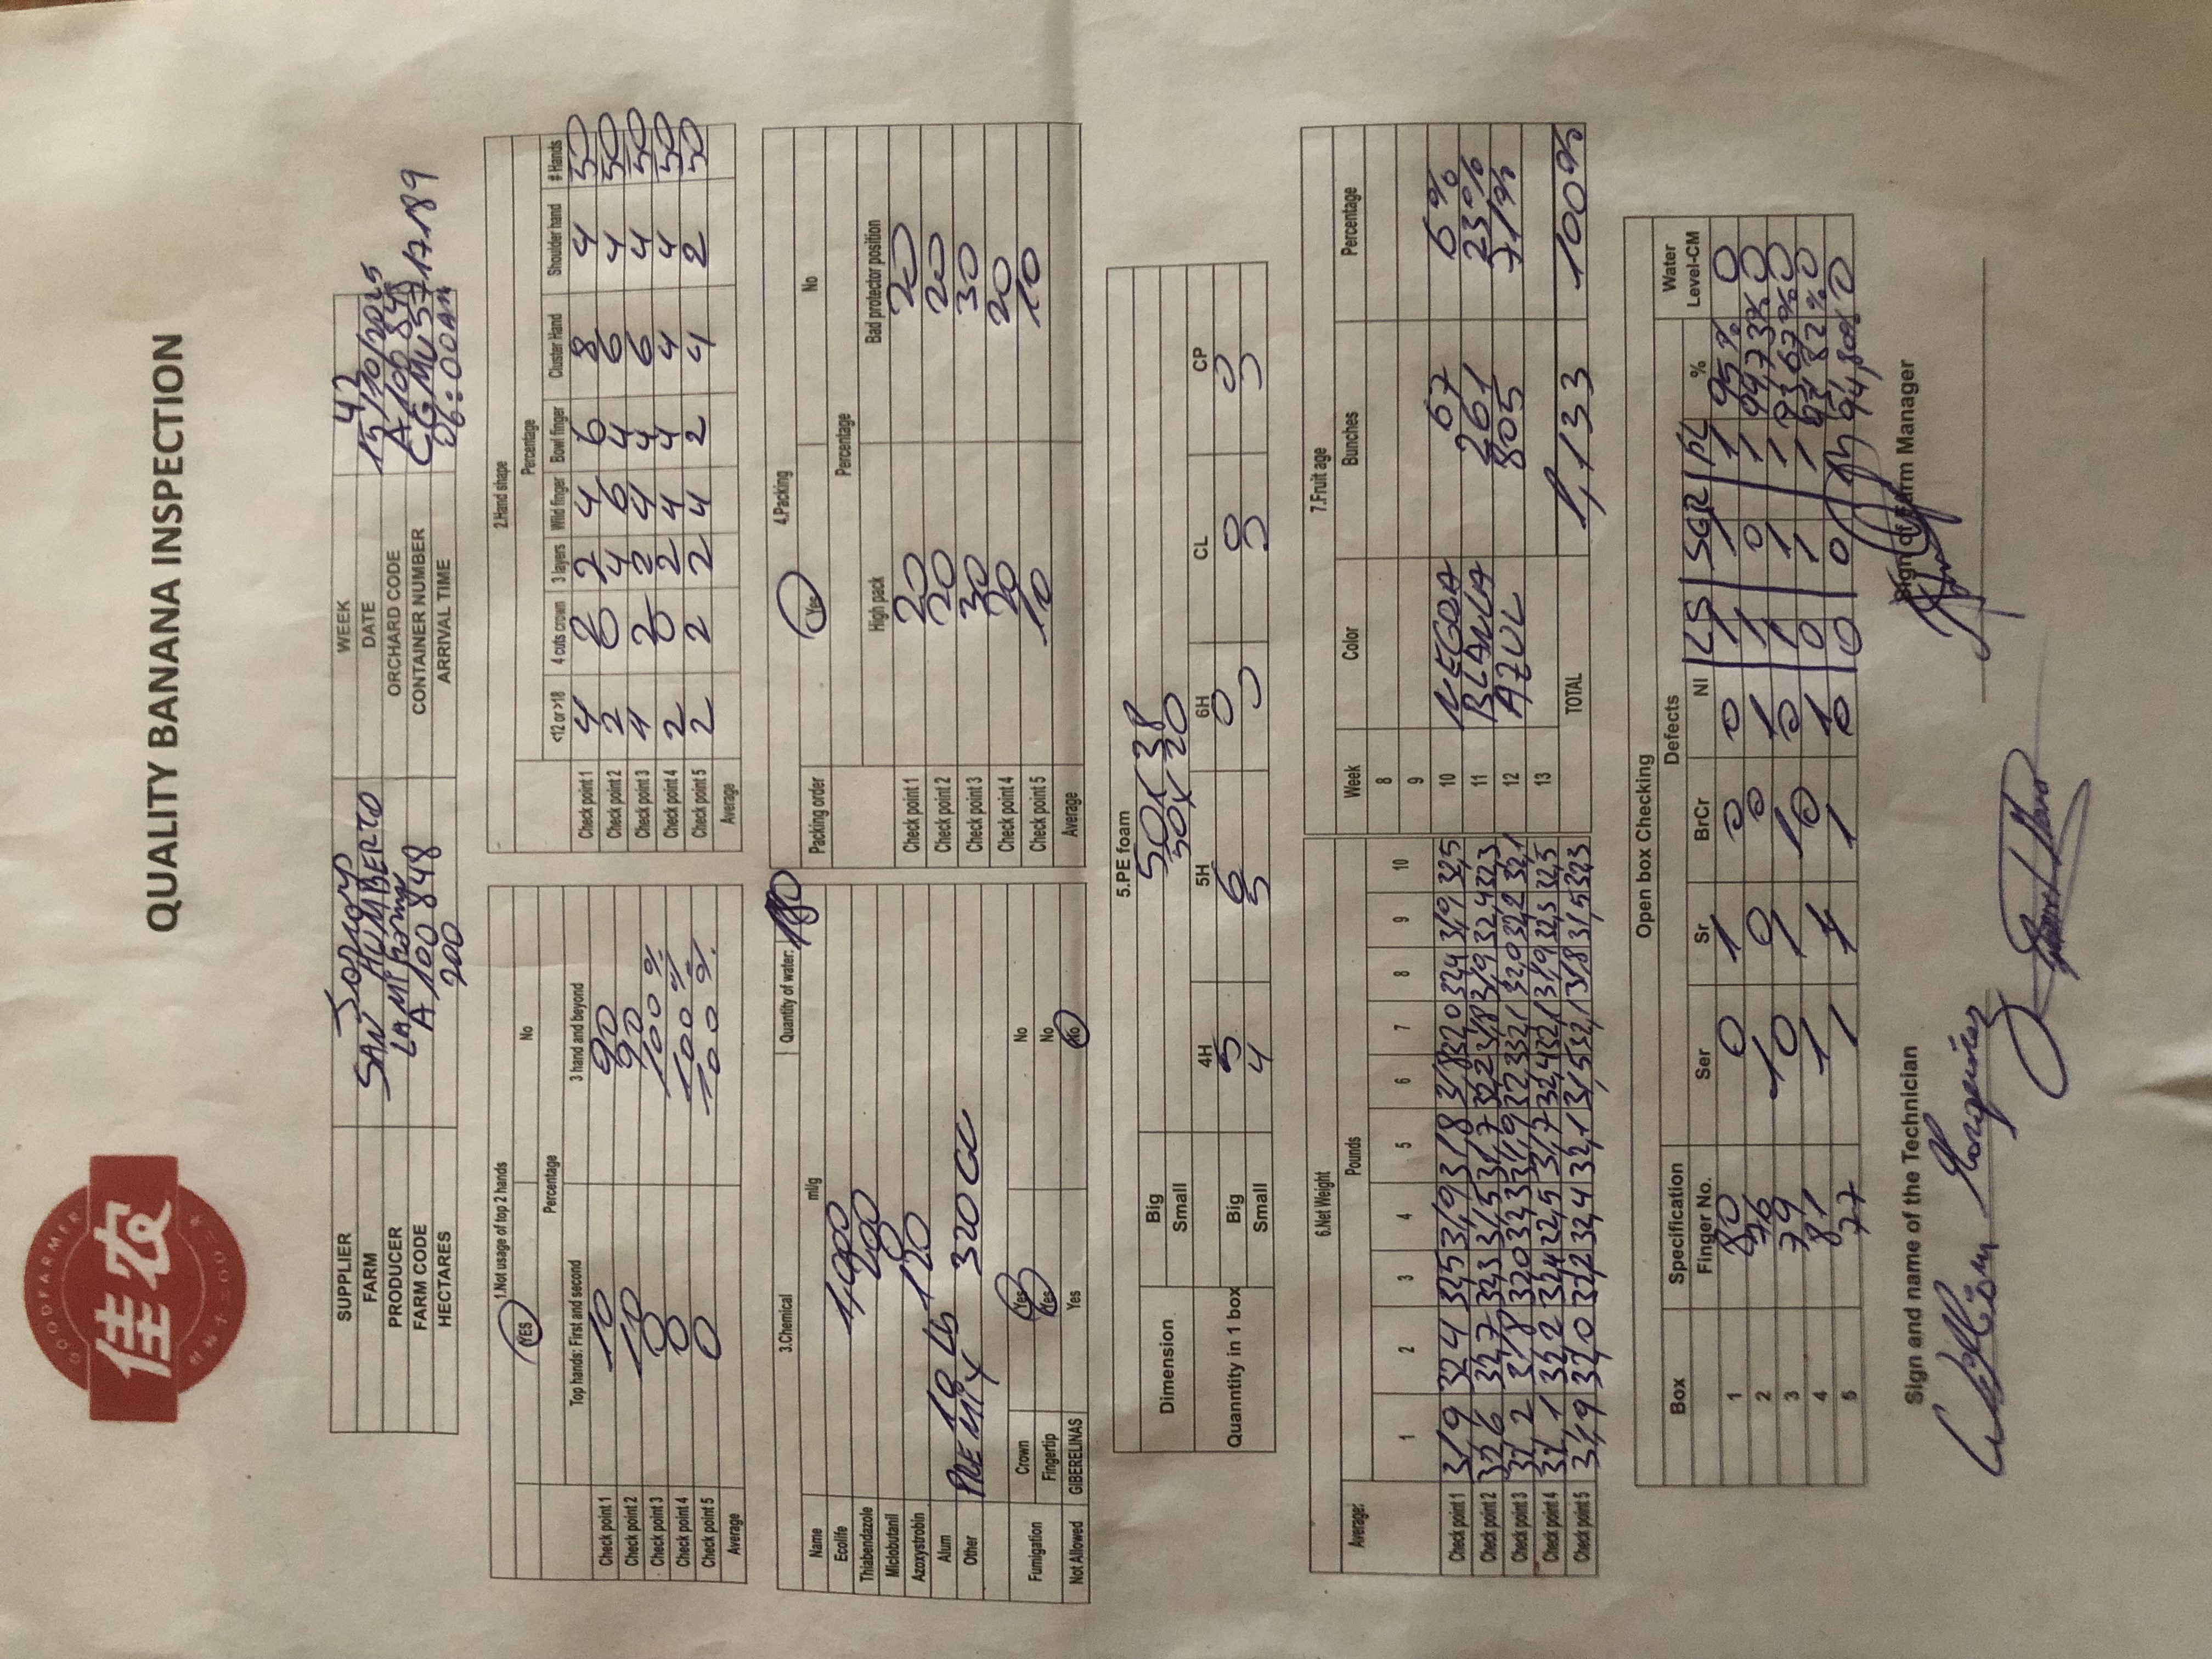 GOODFARMER
佳农
QUALITY BANANA INSPECTION
SUPPLIER Sorcorp WEEK 42
FARM SAN HUMBERTO DATE 15/10/2025
PRODUCER ORCHARD CODE A100848
FARM CODE A100848 CONTAINER NUMBER CGMU5717189
HECTARES 200 ARRIVAL TIME 06:00AM
1.Not usage of top 2 hands
YES No
Percentage
Top hands: First and second 3 hand and beyond
Check point 1 10 90
Check point 2 10 90
Check point 3 0 100%
Check point 4 0 100%
Check point 5 0 100%
Average
2.Hand shape
Percentage
<12 or >18 4 cuts crown 3 layers Wild finger Bowl finger Cluster Hand Shoulder hand # Hands
Check point 1 4 2 2 4 6 8 4 50
Check point 2 2 0 4 6 4 6 4 50
Check point 3 4 2 2 4 4 6 4 50
Check point 4 2 0 2 4 4 4 4 50
Check point 5 2 2 2 4 2 4 2 50
Average
3.Chemical Quantity of water: 180
Name ml/g
Ecolife 1,000
Thiabendazole 200
Miclobutanil 0
Azoxystrobin 120
Alum 10 Lb
Other PREMIX 320CC
Fumigation Crown Yes No
Fingertip Yes No
Not Allowed GIBERELINAS Yes No
4.Packing
Packing order Yes No
Percentage
High pack Bad protector position
Check point 1 20 20
Check point 2 20 20
Check point 3 30 30
Check point 4 20 20
Check point 5 10 10
Average
5.PE foam
Dimension Big 50x38
Small 50x20
4H 5H 6H CL CP
Quanntity in 1 box Big 5 6 0 0 0
Small 4 5 0 0 0
6.Net Weight
Average: Pounds
1 2 3 4 5 6 7 8 9 10
Check point 1 31,9 32,4 32,5 31,9 31,8 31,8 32,0 32,4 31,9 32,5
Check point 2 32,6 32,7 32,3 31,5 31,7 32,2 31,8 31,9 32,4 32,3
Check point 3 32,2 31,8 32,0 32,3 31,9 32,3 32,1 32,0 32,2 32,1
Check point 4 32,1 32,2 32,4 32,5 31,7 32,4 32,1 31,9 32,3 32,5
Check point 5 31,9 32,0 32,2 32,4 32,1 31,5 32,1 31,8 31,5 32,3
7.Fruit age
Week Color Bunches Percentage
8
9
10 NEGRA 67 6%
11 BLANCA 261 23%
12 AZUL 805 71%
13
TOTAL 1,133 100%
Open box Checking
Box Specification Defects Water
Finger No. Ser Sr BrCr NI LS SGR PL % Level-CM
1 80 0 1 0 0 1 1 1 95% 0
2 76 1 0 0 1 1 0 1 94,73% 0
3 79 0 1 1 0 1 1 1 93,67% 0
4 81 1 1 0 1 0 1 1 93,82% 0
5 77 1 1 1 0 0 0 94,80% 0
Sign and name of the Technician
Sign of Farm Manager
William